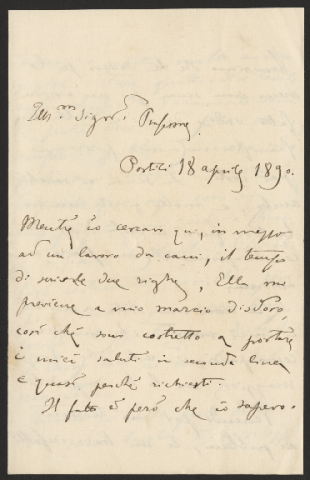 Ill.mo Signor
Portici 18 aprile 1890.
Mentre io cercavo qui, in mezzo
ad un lavoro da cani, il tempo
di scriverle due righe, Ella mi
previene a mio marcio disdoro,
così che sono costretto a portare
i miei saluti in seconda linea
e quasi perchè richiesti.
Il fatto è però che io sapevo